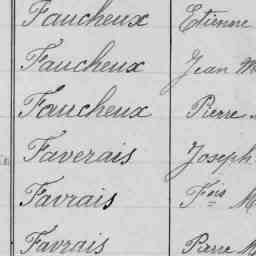 Faucheux Etienne
Faucheux Jean M
Faucheux Pierre
Faverais Joseph
Favrais Fois M
Favrais Pierre M